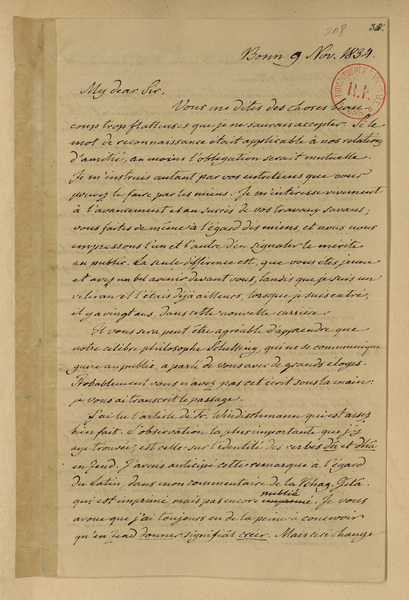 208
Bonn 9 Nov. 1834.
My dear Sir,
Vous me dites des choses beau-
coup trop flatteuses que je ne saurais accepter. Si le
mot de reconnaissance était applicable à nos relations
d'amitié, au moins l'obligation serait mutuelle.
Je m'instruis autant par vos entretiens que vous
pouvez le faire par les miens. Je m'intéresse vivement
à l'avancement et au succès de vos travaux savans;
vous faites de même à l'égard des miens, et nous nous
empressons l'un et l'autre d'en signaler le mérite
au public. La seule différence est, que vous êtes jeune
et avez un bel avenir devant vous, tandis que je suis un
vétéran et l'étais déjà ailleurs, lorsque je suis entré,
il y a vingt ans, dans cette nouvelle carrière.
Il vous sera peut être agréable d'apprendre que
notre célèbre philosophe Schelling, qui ne se communique
guère au public, a parlé de vous avec de grands éloges.
Probablement vous n'avez pas cet écrit sous la main:
je vous ai transcrit le passage.
J'ai lu l'article de Fr. Windischmann qui est assez
bien fait. L'observation la plus importante que j'y
aye trouvée, est celle sur l'identité des verbes dâ et dhâ
en Zend. J'avais anticipé cette remarque à l'égard
du Latin, dans mon commentaire de la Bhag. Gîtâ.
qui est imprimé mais pas encore publié
Je vous
avoue que j'ai toujours eu de la peine à concevoir
qu'en Zend donner signifiât créer. Mais ceci change